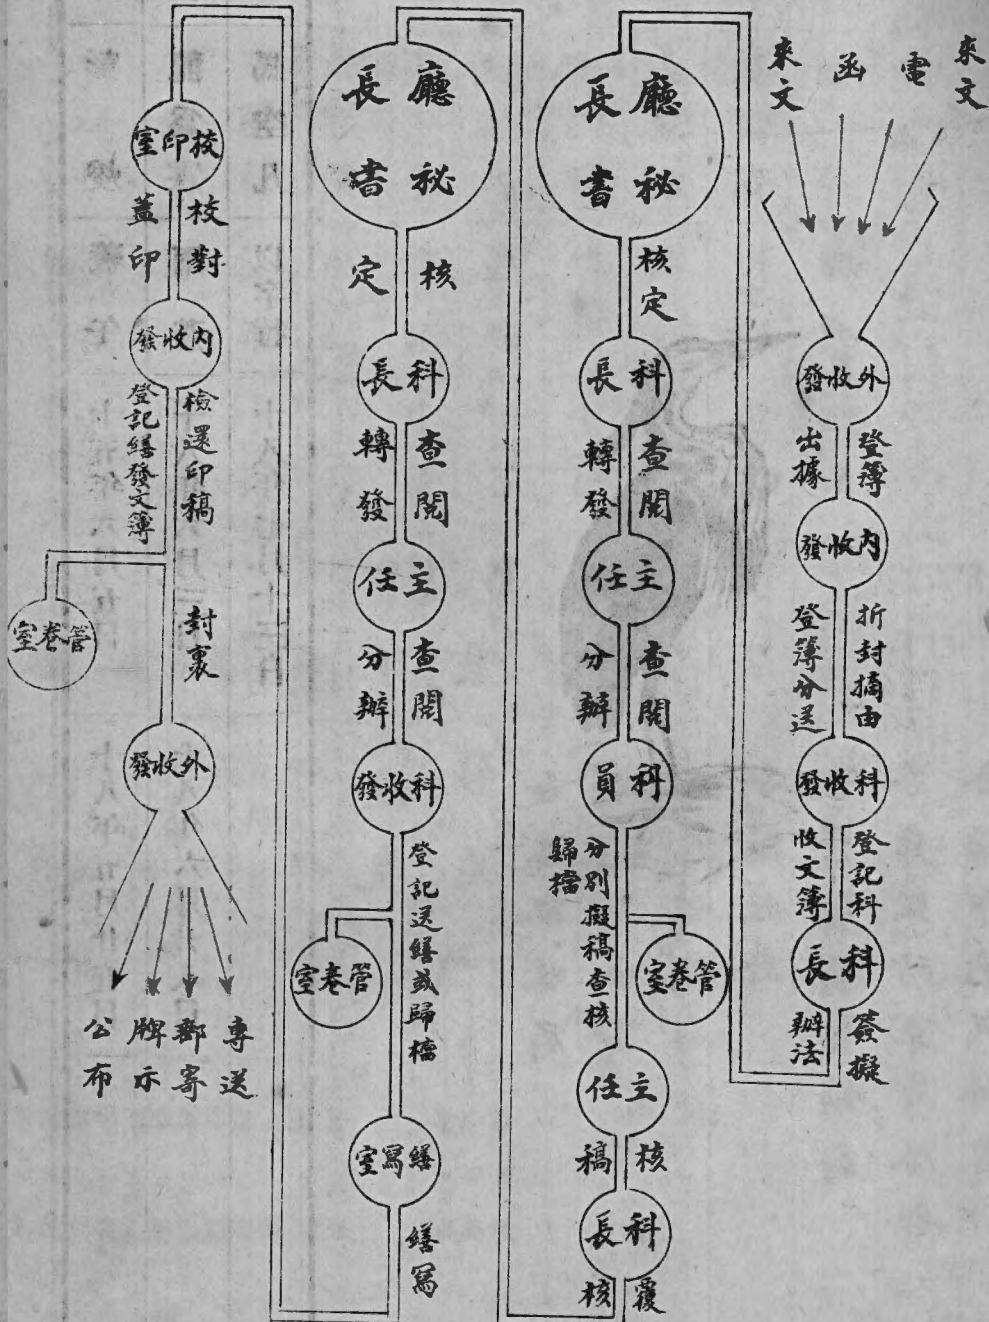 來文
電
函
來文
外收發
登簿
出據
內收發
折封摘由
登簿分送
科收發
登記科
收文簿
科長
簽擬
辦法
廳長
秘書
核定
科長
查閱
轉發
主任
查閱
分辦
科員
分別擬稿查核
歸檔
管卷室
主任
核稿
科長
覆核
廳長
秘書
核定
科長
查閱
轉發
主任
查閱
分辦
科收發
登記送繕或歸檔
管卷室
繕寫室
繕寫
校印室
校對
蓋印
內收發
檢還印稿
登記繕發文簿
管卷室
封裹
外收發
專送
郵寄
牌示
公布